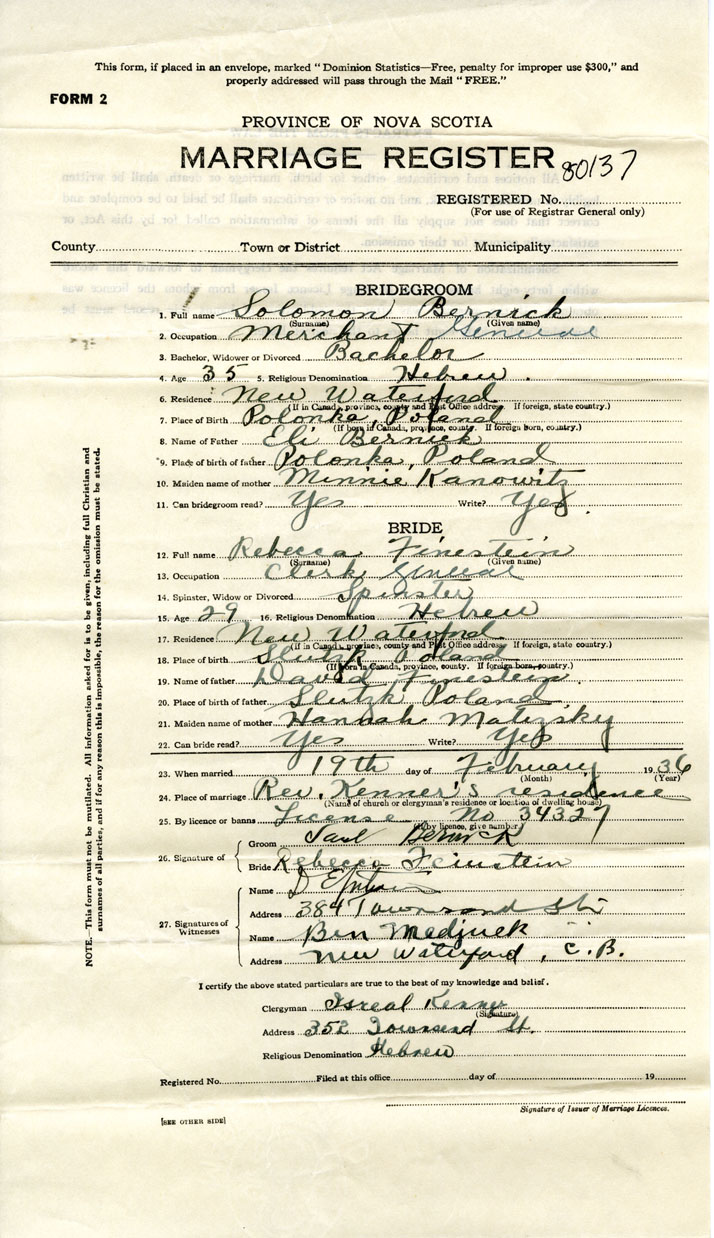 This form, if placed in an envelope, marked "Dominion Statistics—Free, penalty for improper use $300," and
properly addressed will pass through the Mail "FREE."
FORM 2
PROVINCE OF NOVA SCOTIA
MARRIAGE REGISTER 80137
REGISTERED No.
(For use of Registrar General only)
County Town or District Municipality
BRIDEGROOM
1. Full name Solomon Bernick
(Surname) (Given name)
2. Occupation Merchant General
3. Bachelor, Widower or Divorced Bachelor
4. Age 35 5. Religious Denomination Hebrew.
6. Residence New Waterford
(If in Canada, province, county and Post Office address. If foreign, state country.)
7. Place of Birth Polonka, Poland
(If born in Canada, province, county. If foreign born, country.)
8. Name of Father Eli Bernick
9. Place of birth of father Polonka, Poland
10. Maiden name of mother Minnie Kanowitz
11. Can bridegroom read? Yes Write? Yes.
BRIDE
12. Full name Rebecca Finestein
(Surname) (Given name)
13. Occupation Clerk General
14. Spinster, Widow or Divorced Spinster
15. Age 29 16. Religious Denomination Hebrew
17. Residence New Waterford
(If in Canada, province, county and Post Office address. If foreign, state country.)
18. Place of birth Slutzk Poland
(If born in Canada, province, county. If foreign born, country.)
19. Name of father David Finestein.
20. Place of birth of father Slutzk Poland
21. Maiden name of mother Hannah Matizsky
22. Can bride read? Yes Write? Yes
23. When married 19th day of February 1936
(Month) (Year)
24. Place of marriage Rev. Kenner's residence
(Name of church or clergyman's residence or location of dwelling house)
25. By licence or banns License No 34327
(If by licence, give number)
26. Signature of
Groom Saul Bernick
Bride Rebecca Feinstein
27. Signatures of Witnesses
Name D
Address 384 Townsend St.
Name Ben Medjuck
Address New Waterford, C.B.
I certify the above stated particulars are true to the best of my knowledge and belief.
Clergyman Isreal Kenner
(Signature)
Address 352 Townsend St.
Religious Denomination Hebrew
Registered No. Filed at this office day of 19
Signature of Issuer of Marriage Licences.
[SEE OTHER SIDE]
NOTE.—This form must not be mutilated. All information asked for is to be given, including full Christian and
surnames of all parties, and if for any reason this is impossible, the reason for the omission must be stated.